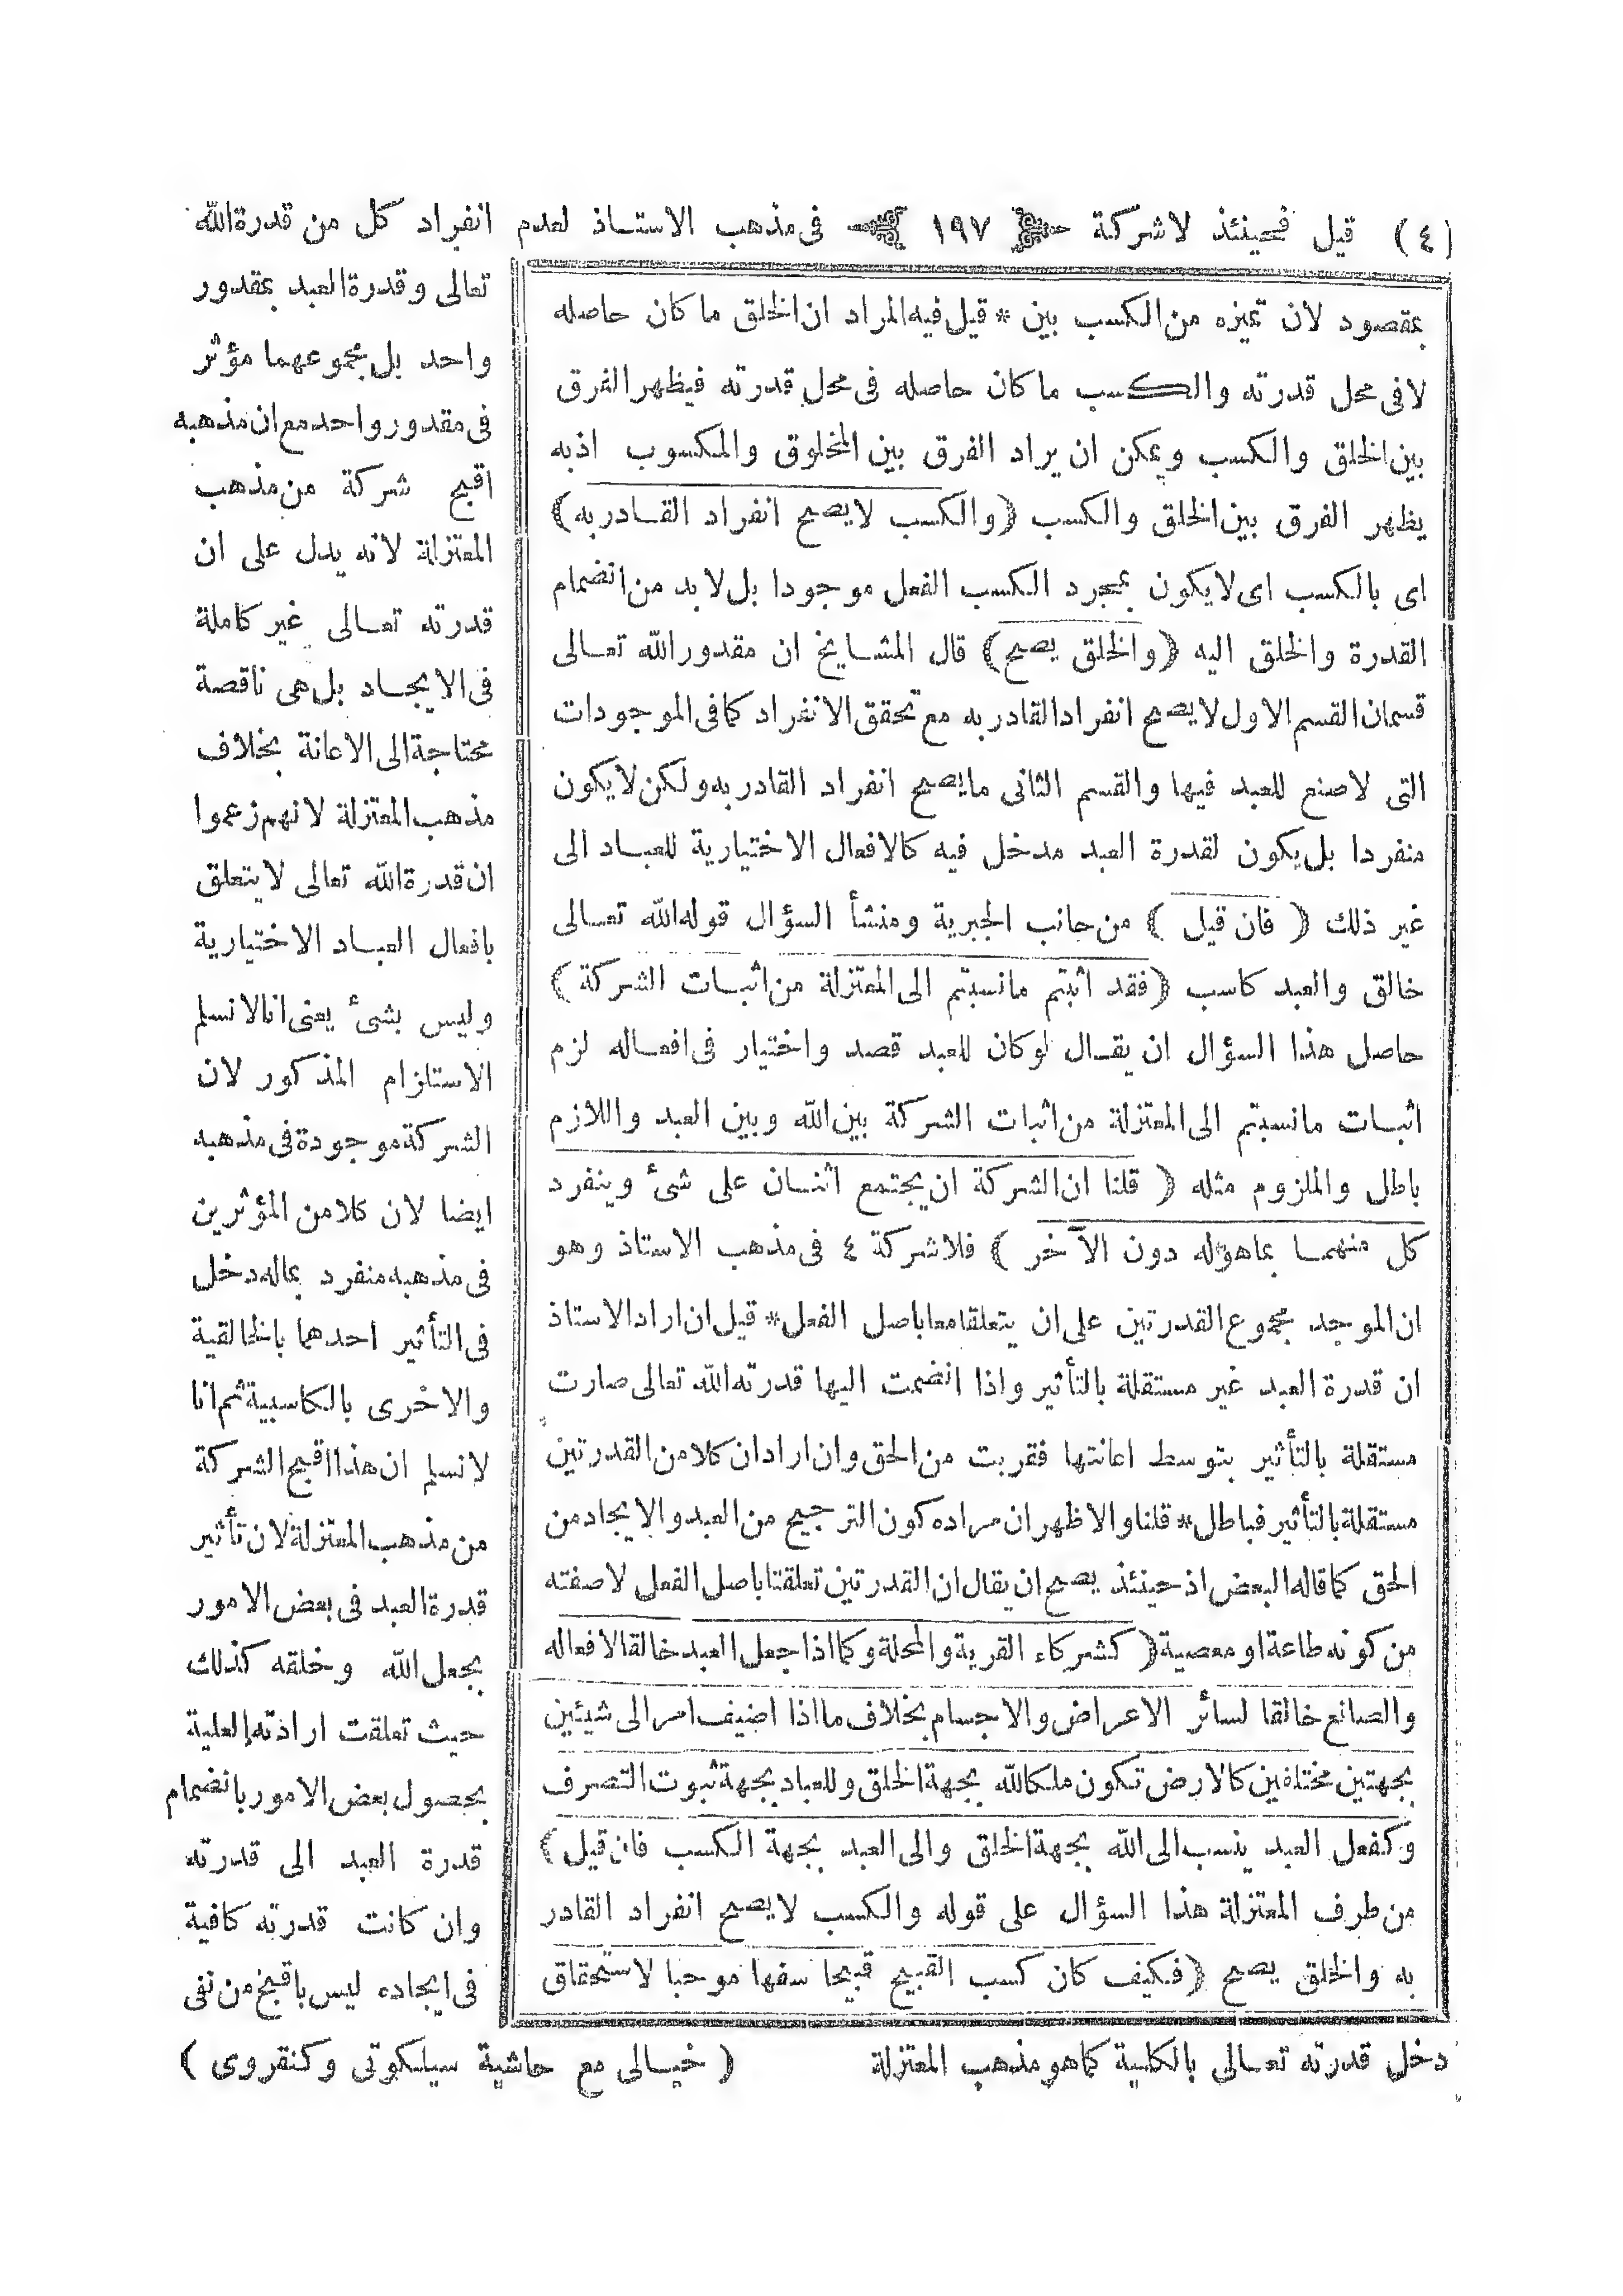 (٤) قيل فحينئذ لاشركة ١٩٧ فى مذهب الاستاذ لعدم انفراد كل من قدرة الله
بمقصود لان تميزه من الكسب بين * قيل فيه المراد ان الخلق ما كان حاصله
لا فى محل قدرته والكسب ما كان حاصله فى محل قدرته فيظهر الفرق
بين الخلق والكسب ويمكن ان يراد الفرق بين المخلوق والمكسوب اذ به
يظهر الفرق بين الخلق والكسب (والكسب لا يصح انفراد القادر به)
اى بالكسب اى لا يكون بمجرد الكسب الفعل موجودا بل لا بد من انضمام
القدرة والخلق اليه (والخلق يصح) قال المشايخ ان مقدور الله تعالى
قسمان القسم الاول لا يصح انفراد القادر به مع تحقق الانفراد كما فى الموجودات
التى لا صنع للعبد فيها والقسم الثانى ما يصح انفراد القادر به ولكن لا يكون
منفردا بل يكون لقدرة العبد مدخل فيه كالافعال الاختيارية للعباد الى
غير ذلك (فان قيل) من جانب الجبرية ومنشأ السؤال قوله الله تعالى
خالق والعبد كاسب (فقد اثبتم ما نسبتم الى المعتزلة من اثبات الشركة)
حاصل هذا السؤال ان يقال لو كان للعبد قصد واختيار فى افعاله لزم
اثبات ما نسبتم الى المعتزلة من اثبات الشركة بين الله وبين العبد واللازم
باطل والملزوم مثله (قلنا ان الشركة ان يجتمع اثنان على شئ وينفرد
كل منهما بما هو له دون الآخر) فلا شركة ٤ فى مذهب الاستاذ وهو
ان الموجد مجموع القدرتين على ان يتعلقا معا باصل الفعل * قيل ان اراد الاستاذ
ان قدرة العبد غير مستقلة بالتأثير واذا انضمت اليها قدرته الله تعالى صارت
مستقلة بالتأثير بتوسط اعانتها فقربت من الحق وان اراد ان كلا من القدرتين
مستقلة بالتأثير فباطل * قلنا والاظهر ان مراده كون الترجيح من العبد والايجاد من
الحق كما قاله البعض اذ حينئذ يصح ان يقال ان القدرتين تعلقتا باصل الفعل لا صفته
من كونه طاعة او معصية (كشركاء القرية والمحلة وكما اذا جعل العبد خالقا لافعاله
والصانع خالقا لسائر الاعراض والاجسام بخلاف ما اذا اضيف امر الى شيئين
بجهتين مختلفين كالارض تكون ملكا لله بجهة الخلق وللعباد بجهة ثبوت التصرف
وكفعل العبد ينسب الى الله بجهة الخلق والى العبد بجهة الكسب فان قيل)
من طرف المعتزلة هذا السؤال على قوله والكسب لا يصح انفراد القادر
به والخلق يصح (فكيف كان كسب القبيح قبيحا سفها موجبا لاستحقاق
تعالى وقدرة العبد بمقدور
واحد بل مجموعهما مؤثر
فى مقدور واحد مع ان مذهبه
اقبح شركة من مذهب
المعتزلة لانه يدل على ان
قدرته تعالى غير كاملة
فى الايجاد بل هى ناقصة
محتاجة الى الاعانة بخلاف
مذهب المعتزلة لانهم زعموا
ان قدرة الله تعالى لا يتعلق
بافعال العباد الاختيارية
وليس بشئ يعنى انا لا نسلم
الاستلزام المذكور لان
الشركة موجودة فى مذهبه
ايضا لان كلا من المؤثرين
فى مذهبه منفرد بما له دخل
فى التأثير احدهما بالخالقية
والاخرى بالكاسبية ثم انا
لا نسلم ان هذا اقبح الشركة
من مذهب المعتزلة لان تأثير
قدرة العبد فى بعض الامور
بجعل الله وخلقه كذلك
حيث تعلقت ارادته العلية
بحصول بعض الامور بانضمام
قدرة العبد الى قدرته
وان كانت قدرته كافية
فى ايجاده ليس باقبح من نفى
دخل قدرته تعالى بالكلية كما هو مذهب المعتزلة (خيالى مع حاشية سيلكوتى وكنقروى)